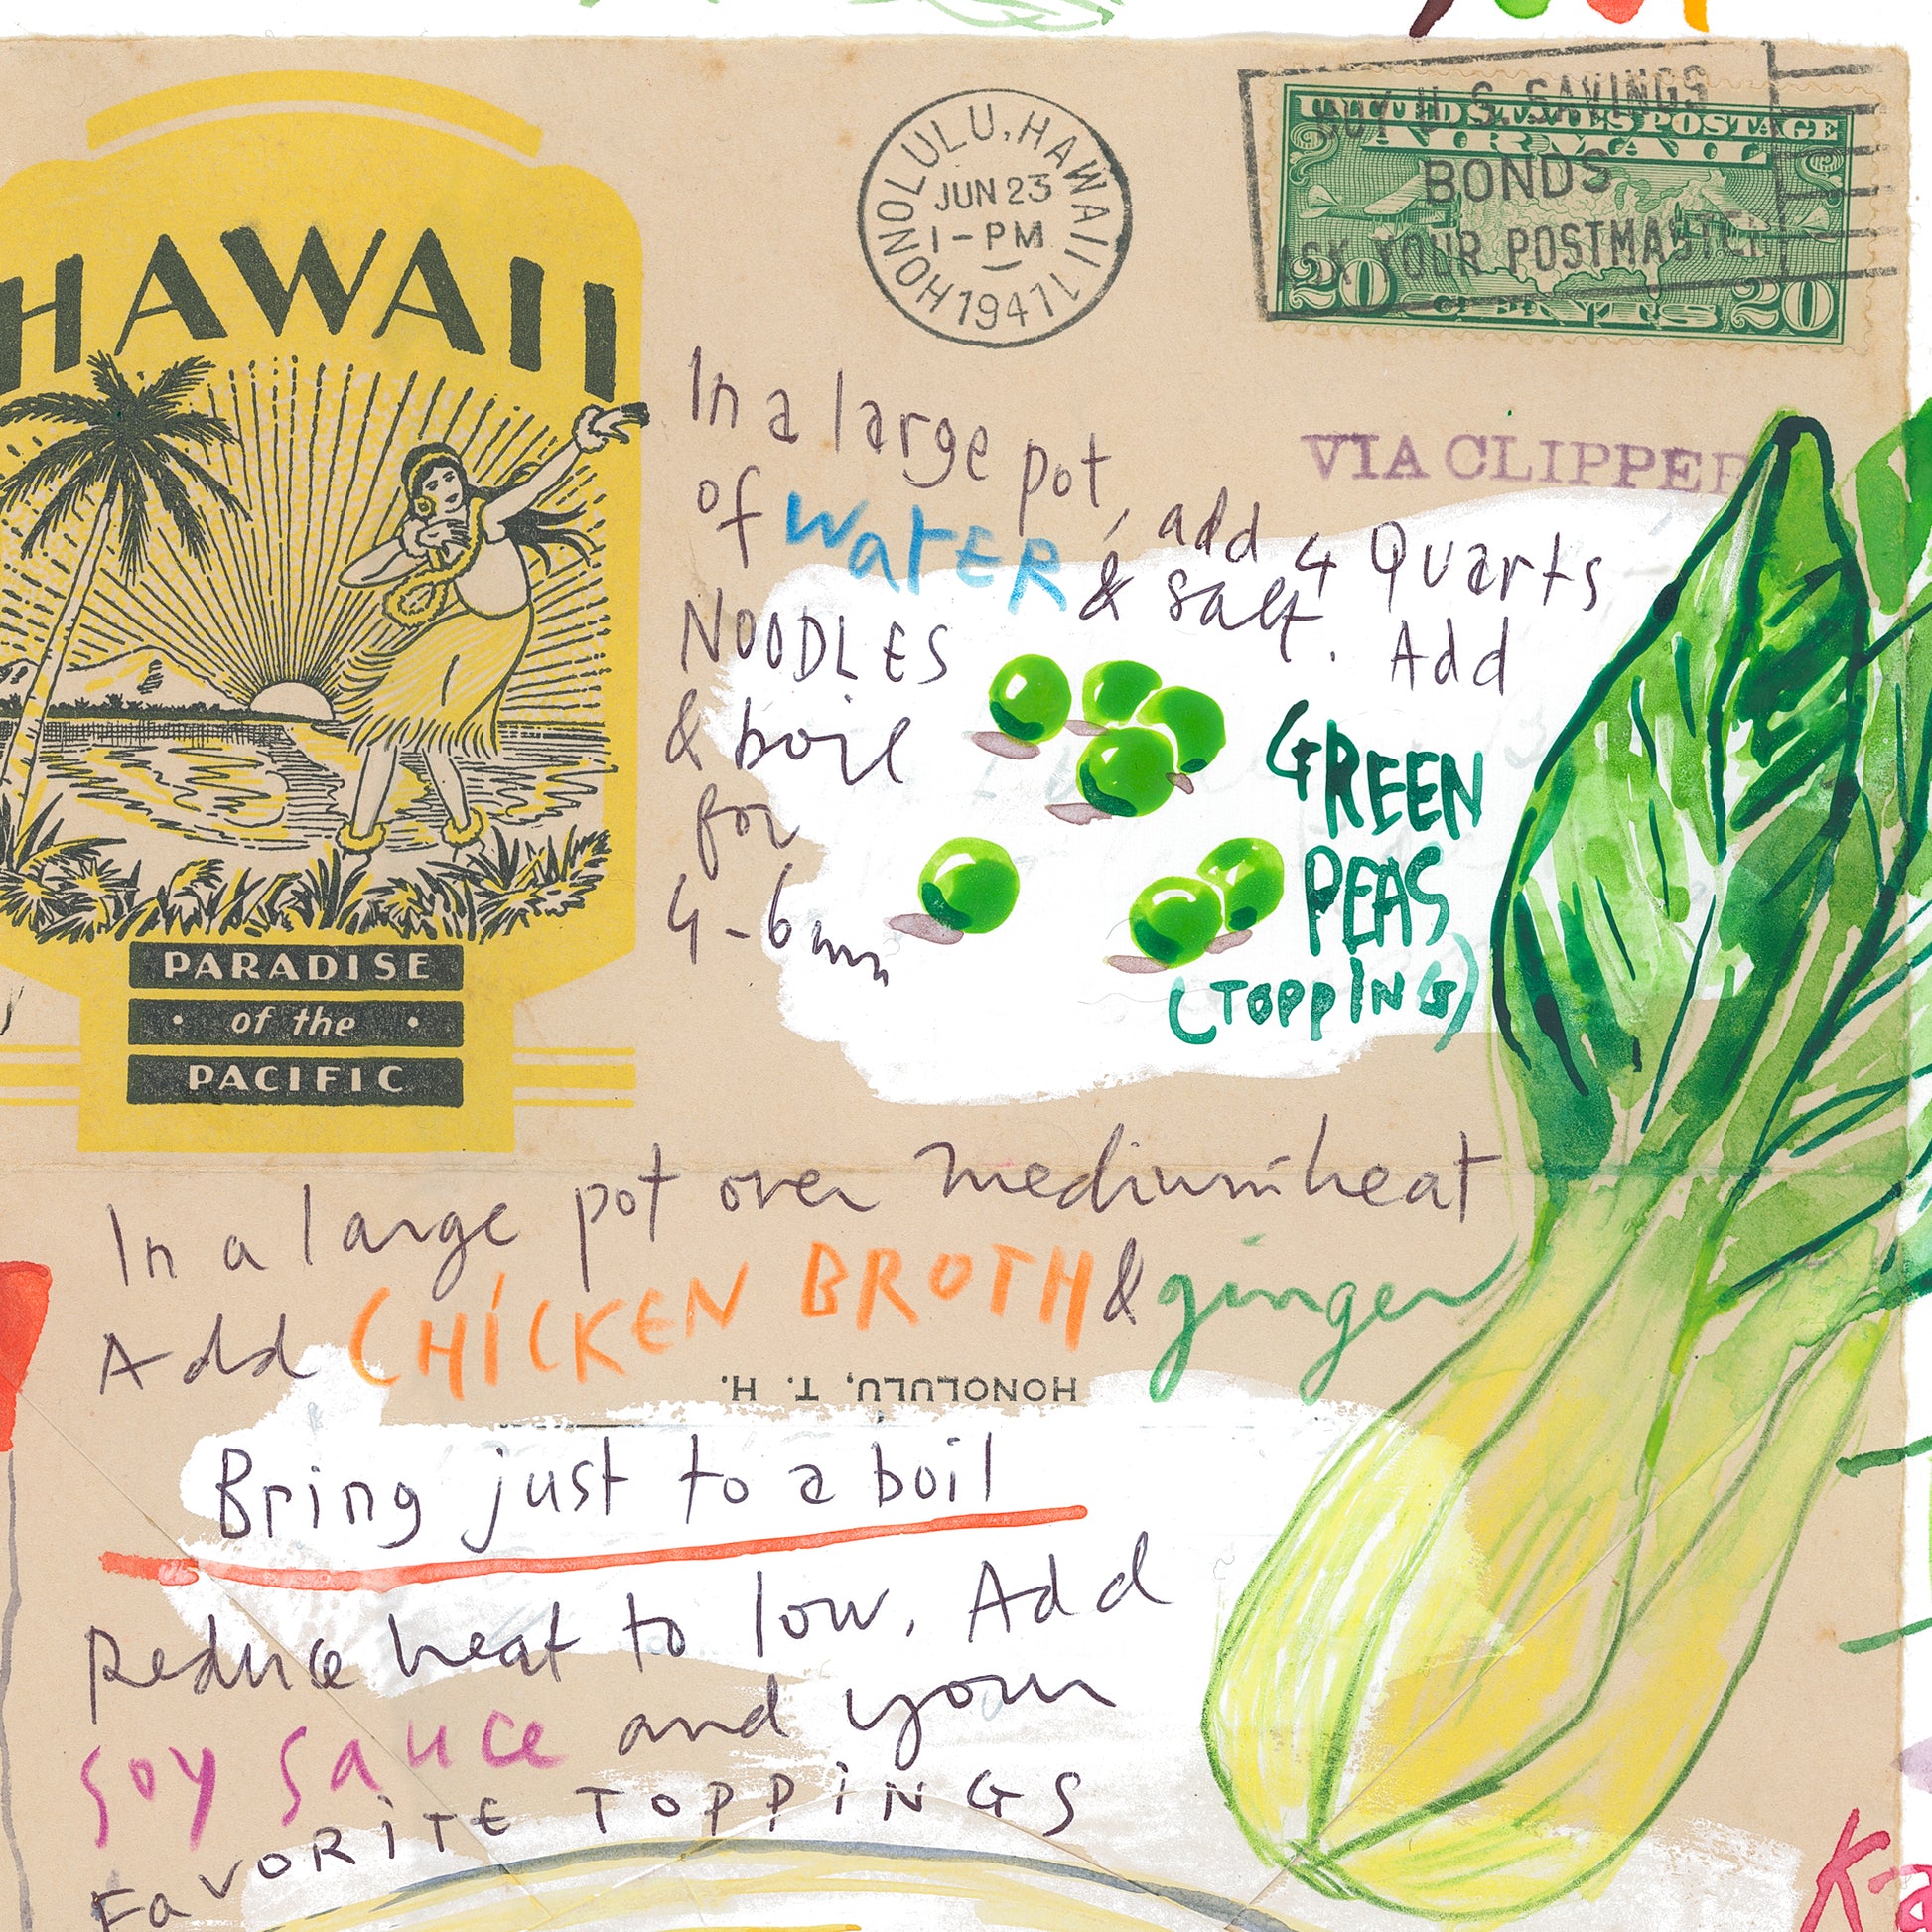 HAWAII
PARADISE
of the
PACIFIC
HONOLULU, HAWAII
JUN 23
1-PM
1941
BUY U.S. SAVINGS
BONDS
ASK YOUR POSTMASTER
UNITED STATES POSTAGE
AIR MAIL
20 CENTS 20
VIA CLIPPER
In a large pot, add 4 Quarts
of water & salt. Add
NOODLES
& boil
for
4-6 min
GREEN
PEAS
(TOPPING)
In a large pot over medium heat
Add CHICKEN BROTH & ginger
HONOLULU, T. H.
Bring just to a boil
Reduce heat to low. Add
Soy Sauce and your
FaVORITE TOPPINGS
Ka